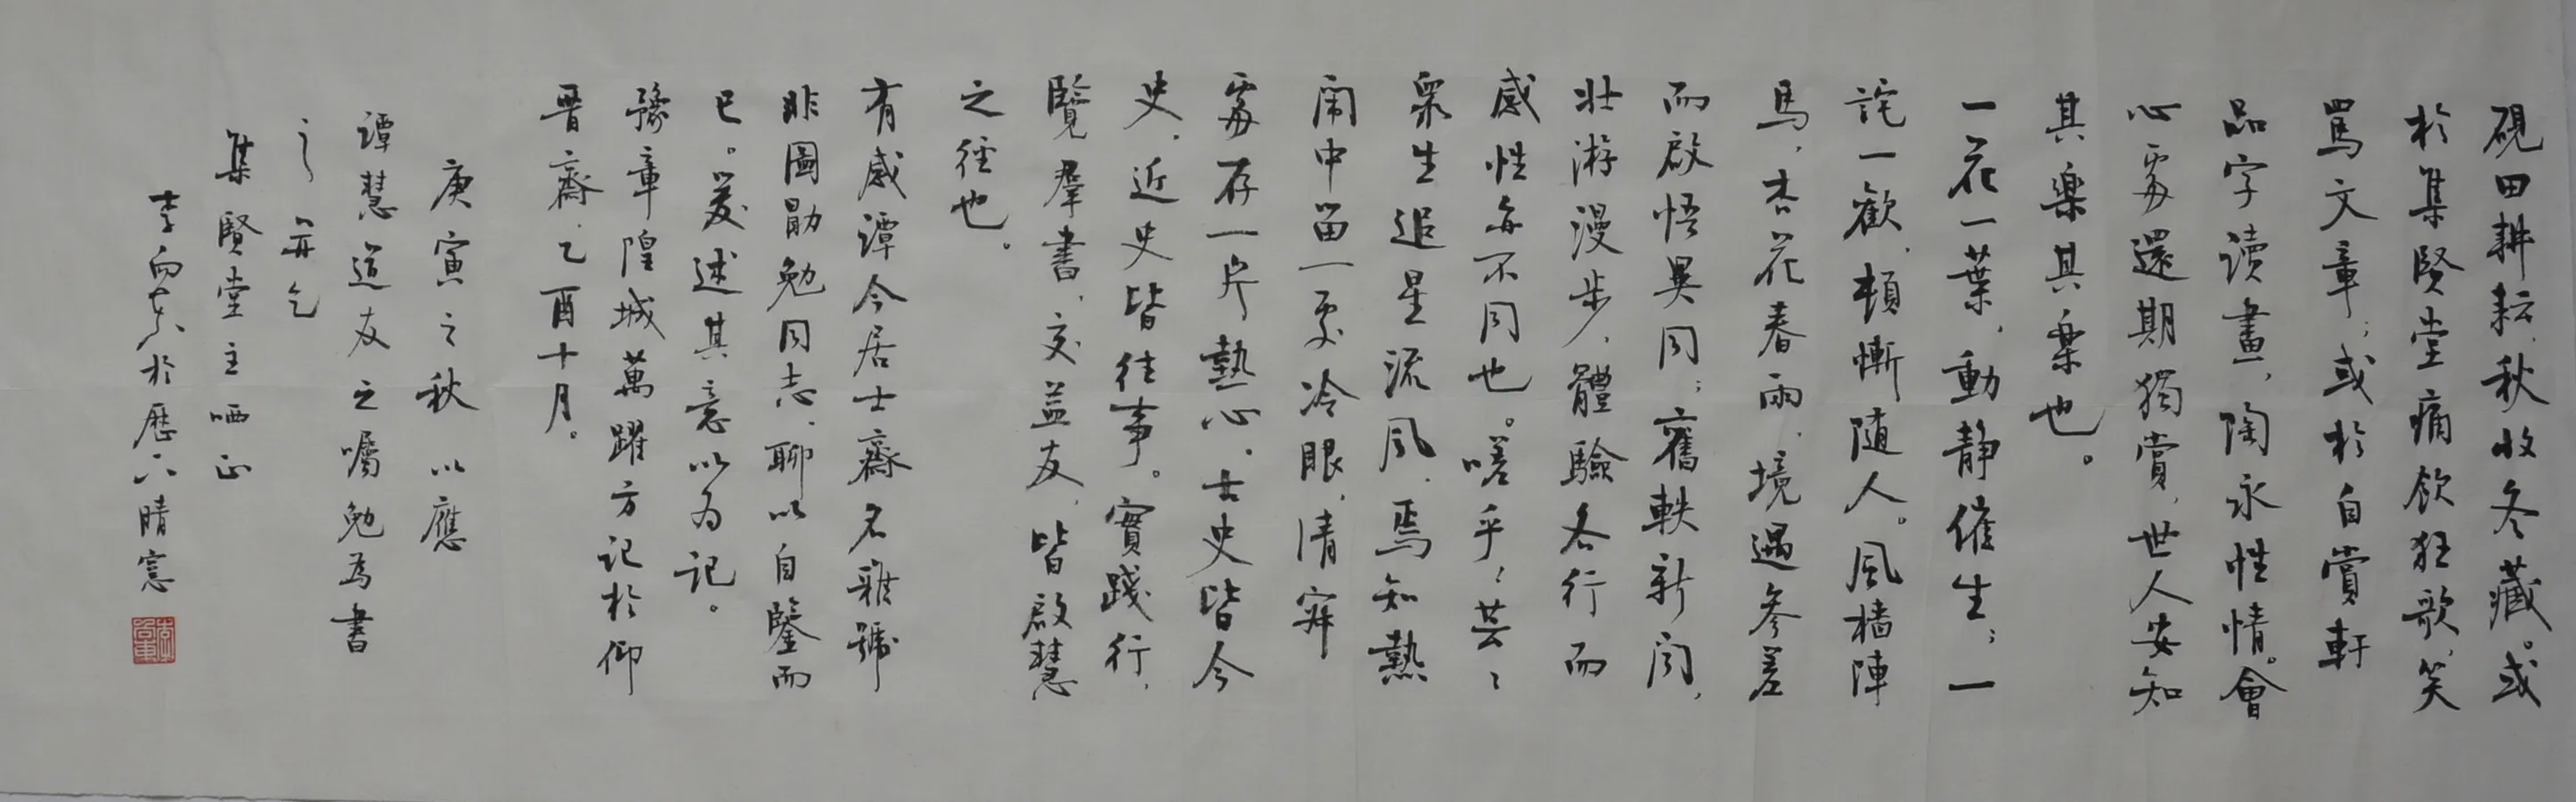 硯田耕耘，秋收冬藏。或
於集賢堂痛飲狂歌，笑
罵文章；或於自賞軒
品字讀畫，陶泳性情。會
心處還期獨賞，世人安知
其樂其樂也。
一花一葉，動靜催生；一
詫一歡，頓慚随人。風檣陣
馬，杏花春雨，境遇參差
而啟悟異同；舊軼新聞，
壯游漫步，體驗各行而
感性亦不同也。嗟乎，芸〻
衆生追星流風，焉知熱
鬧中留一雙冷眼，清寂
處存一片熱心。古史皆今
史，近史皆往事。實踐行，
覽羣書，交益友，皆啟慧
之徑也。
有感譚今居士齋名雅號
非圖勖勉同志，聊以自鑒而
已。爰述其意以为記。
豫章隍城萬躍方記於仰
晋齋，乙酉十月。
庚寅之秋 以應
譚慧道友之囑勉為書
之 并乞
集賢堂主哂正
李向東於歷下晴窗